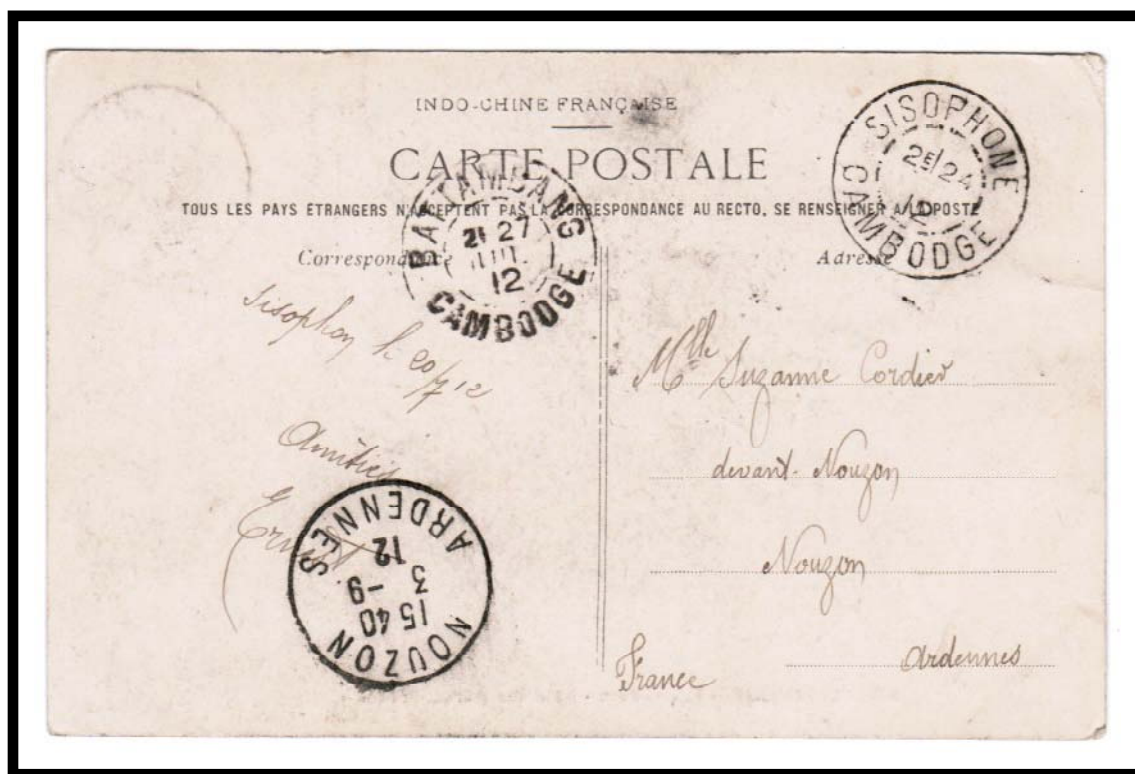 INDO-CHINE FRANÇAISE
CARTE POSTALE
TOUS LES PAYS ÉTRANGERS N'ACCEPTENT PAS LA CORRESPONDANCE AU RECTO, SE RENSEIGNER A LA POSTE
Correspondance
Adresse
SISOPHONE
2E/24
12
CAMBODGE
BATTAMBANG
2E 27
JUIL.
12
CAMBODGE
Sisophon le 20/7 12
Amitiés
Ernest
NOUZON
15 40
3 -9
12
ARDENNES
Mlle Suzanne Cordier
devant-Nouzon
Nouzon
Ardennes
France